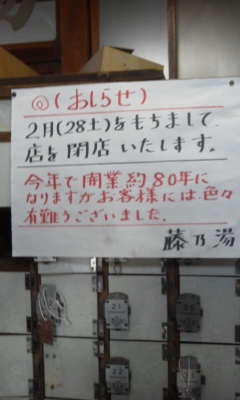 ◎(おしらせ)
2月(28土)をもちまして
店を閉店いたします。
今年で開業約80年に
なりますがお客様には色々
有難うございました。
藤乃湯
21
22